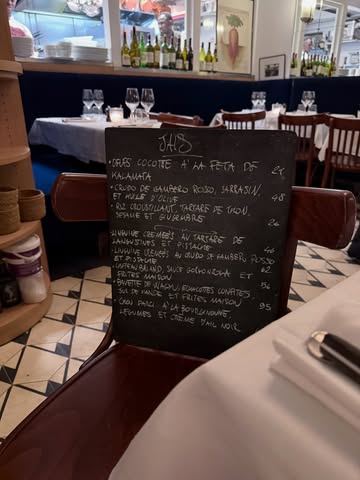 JAIS
• OEUFS COCOTTE À LA FETA DE
KALAMATA 24
• CRUDO DE GAMBERO ROSSO, SARRASIN
ET HUILE D'OLIVE 48
• RIZ CROUSTILLANT, TARTARE DE THON,
SESAME ET GINGEMBRE 26
LINGUINE CREMEES AU TARTARE DE
LANGOUSTINES ET PISTACHE 46
LINGUINE CREMEES AU CRUDO DE GAMBERO ROSSO
ET PISTACHE 62
CHATEAUBRIAND, SAUCE GORGONZOLA ET
FRITES MAISON 56
• BAVETTE DE WAGYU, ECHALOTES CONFITES,
JUS DE VIANDE ET FRITES MAISON 95
• CHOU FARCI À LA BOURGUIGNONNE,
LEGUMES ET CREME D'AIL NOIR